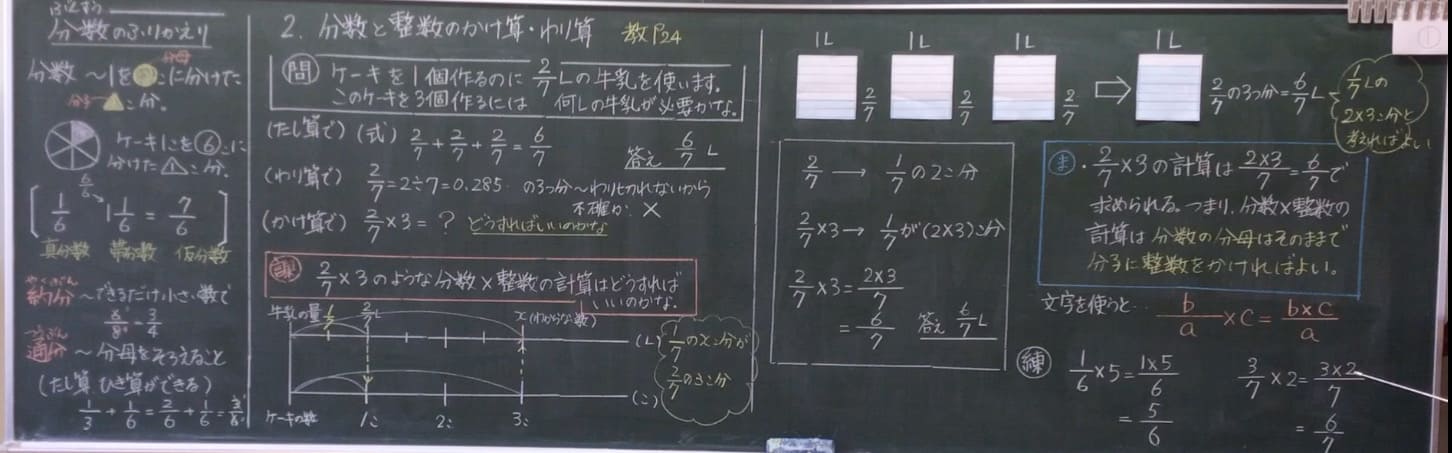 分数のふりかえり
分母
分数〜1を●こに分けた
分子▲こ分。
ケーキ1こを⑥こに
分けた△1こ分。
6/6
[1/6 1 1/6 = 7/6]
真分数 帯分数 仮分数
やくぶん
約分〜できるだけ小さい数で
6/8=3/4
つうぶん
通分〜分母をそろえること
(たし算 ひき算ができる)
1/3+1/6=2/6+1/6=3/6
2. 分数と整数のかけ算・わり算 教P24
問 ケーキを1個作るのに2/7Lの牛乳を使います。
このケーキを3個作るには 何Lの牛乳が必要かな。
(たし算で) (式) 2/7+2/7+2/7=6/7
答え 6/7 L
(わり算で) 2/7=2÷7=0.285 の3つ分〜わりきれないから
不確か ×
(かけ算で) 2/7×3=? どうすればいいのかな
課 2/7×3のような分数×整数の計算はどうすれば
いいのかな。
牛乳の量 1/7 2/7L x(わからない数)
(L)
(こ)
ケーキの数 1こ 2こ 3こ
1/7のxこ分が
2/7の3こ分
1L 1L 1L 1L
2/7 2/7 2/7 ⇨ 2/7の3つ分=6/7L
1/7Lの
2×3こ分と
考えればよい
2/7 → 1/7の2こ分
2/7×3→ 1/7が(2×3)こ分
2/7×3=2×3/7
=6/7 答え 6/7L
ま ・2/7×3の計算は2×3/7=6/7で
求められる。つまり、分数×整数の
計算は分数の分母はそのままで
分子に整数をかければよい。
文字を使うと… b/a×c=b×c/a
練 1/6×5=1×5/6
=5/6
3/7×2=3×2/7
=6/7